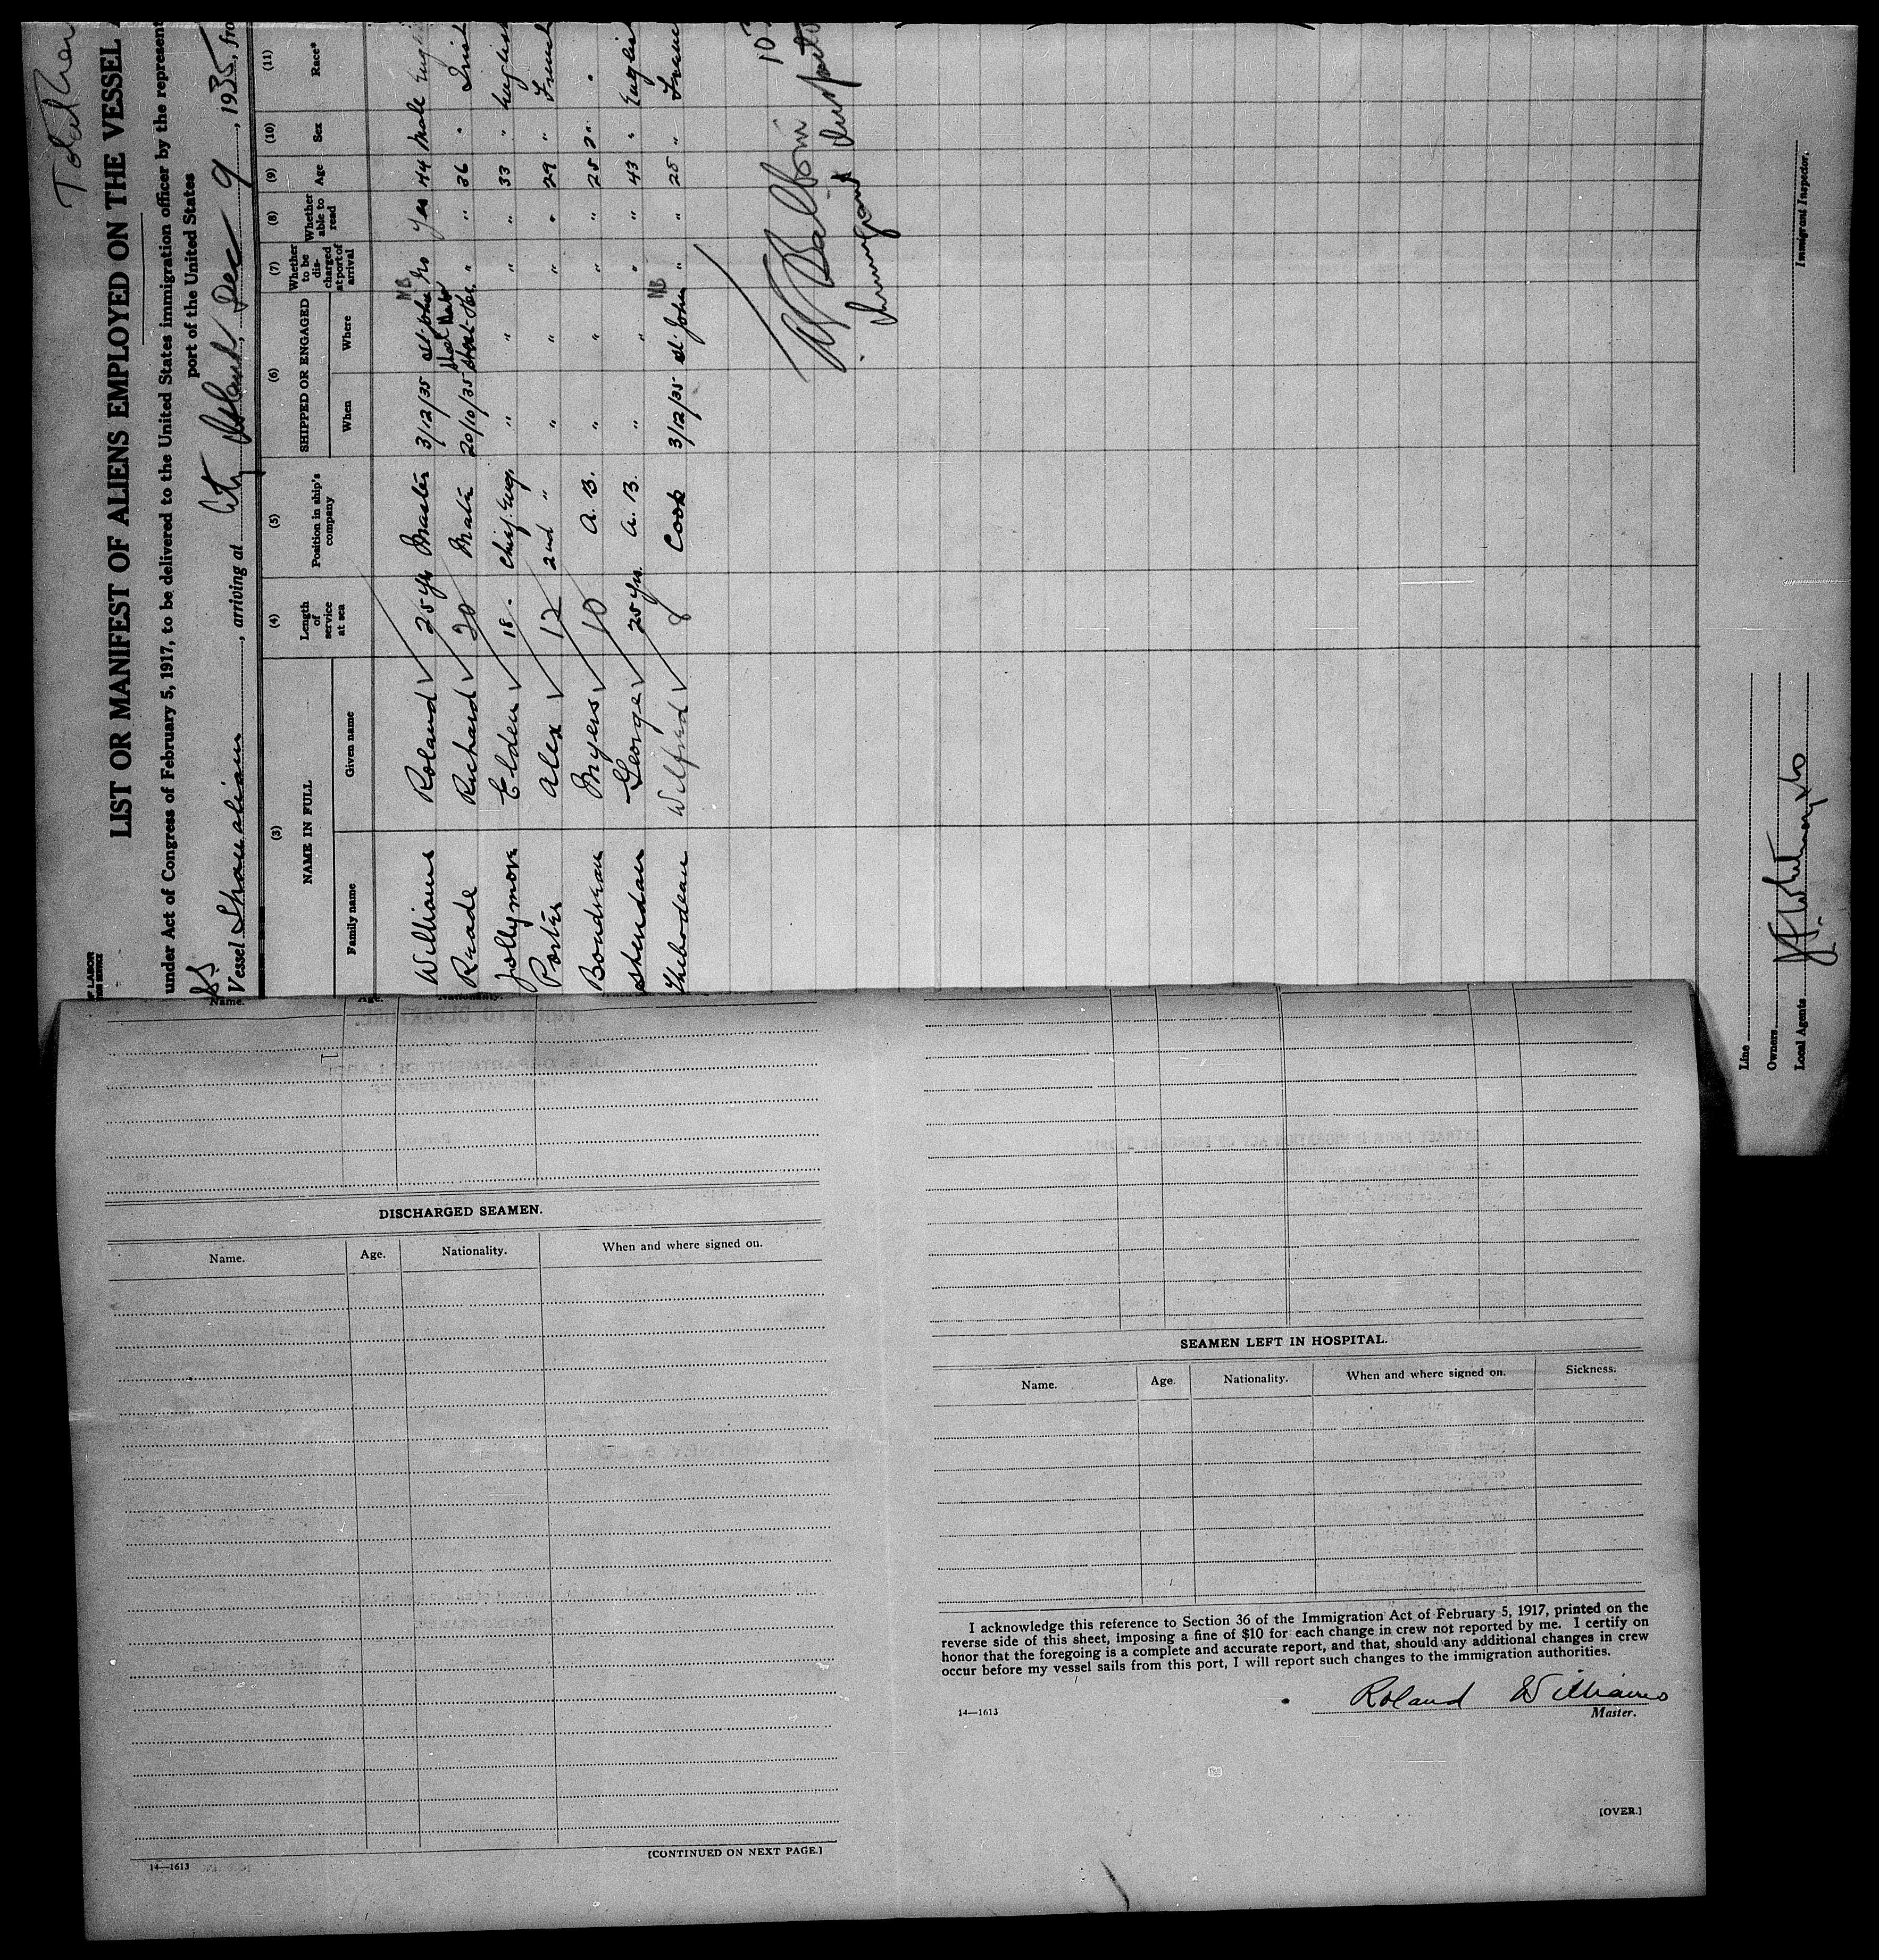 LIST OR MANIFEST OF ALIENS EMPLOYED ON THE VESSEL
under Act of Congress of February 5, 1917, to be delivered to the United States immigration officer by the represent
port of the United States
SS
Vessel , arriving at City Island, Dec 9, 1935, fro
(3) (4) (5) (6) (7) (8) (9) (10) (11)
NAME IN FULL
Family name Given name
Length of service at sea
Position in ship's company
SHIPPED OR ENGAGED
When Where
Whether to be discharged at port of arrival
Whether able to read
Age Sex Race*
Williams Roland 25 yrs Master 3/12/35 St. John NB No Yes 44 Male Engli
Reade Richard 20 Mate 20/10/35 " " 36 " Irish
Jollymore Elden 18 " Chief Eng. " " " " 33 " English
Porter Alex 12 2nd " " " " " 29 " French
Boudreau Myers 10 A.B. " " " " 25 "
Sheridan George 25 yrs. A.B. " " " " 43 " Englis
Thebodeau Wilfred 8 Cook 3/12/35 St. John NB " " 28 " Fren
Immigrant Inspector
Immigrant Inspector.
Line
Owners
Local Agents J.F. Whitney & Co
Name. Age. Nationality.
DISCHARGED SEAMEN.
Name. Age. Nationality. When and where signed on.
14—1613
[CONTINUED ON NEXT PAGE.]
SEAMEN LEFT IN HOSPITAL.
Name. Age. Nationality. When and where signed on. Sickness.
I acknowledge this reference to Section 36 of the Immigration Act of February 5, 1917, printed on the
reverse side of this sheet, imposing a fine of $10 for each change in crew not reported by me. I certify on
honor that the foregoing is a complete and accurate report, and that, should any additional changes in crew
occur before my vessel sails from this port, I will report such changes to the immigration authorities.
Roland Williams
14—1613
Master.
[OVER.]